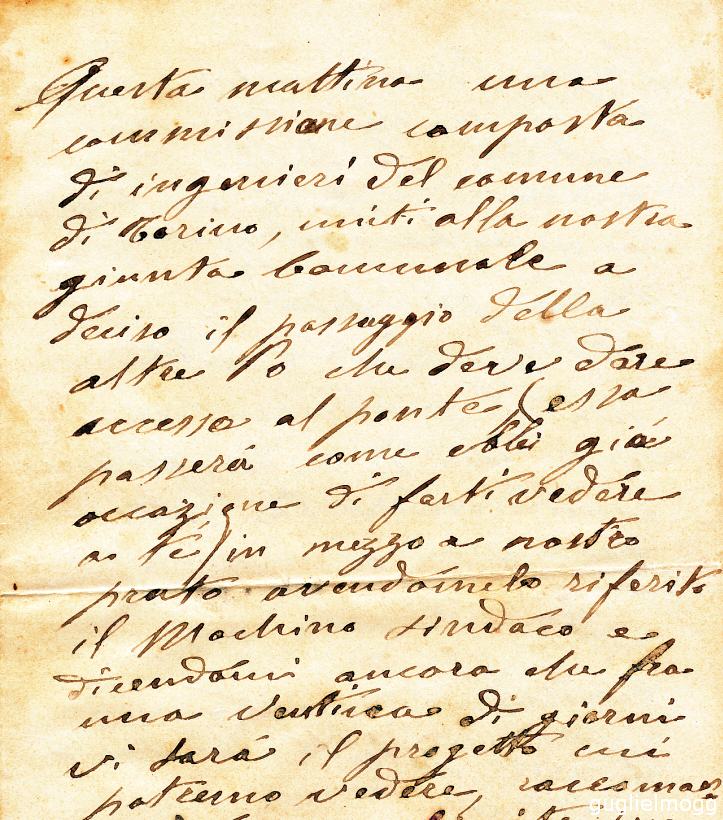 Questa mattina una
commissione composta
di ingenieri del comune
di Torino, uniti alla nostra
giunta Comunale a
deciso il passaggio della
altre Po che deve dare
accesso al ponte (essa
passerá come ebbi giá
occazione di farti vedere
a té) in mezzo a nostro
prato avendomelo riferito
il Mochino sindaco e
dicendomi ancora che fra
una ventina di giorni
vi sará il progetto cui
potremo vedere,
guglielmogg